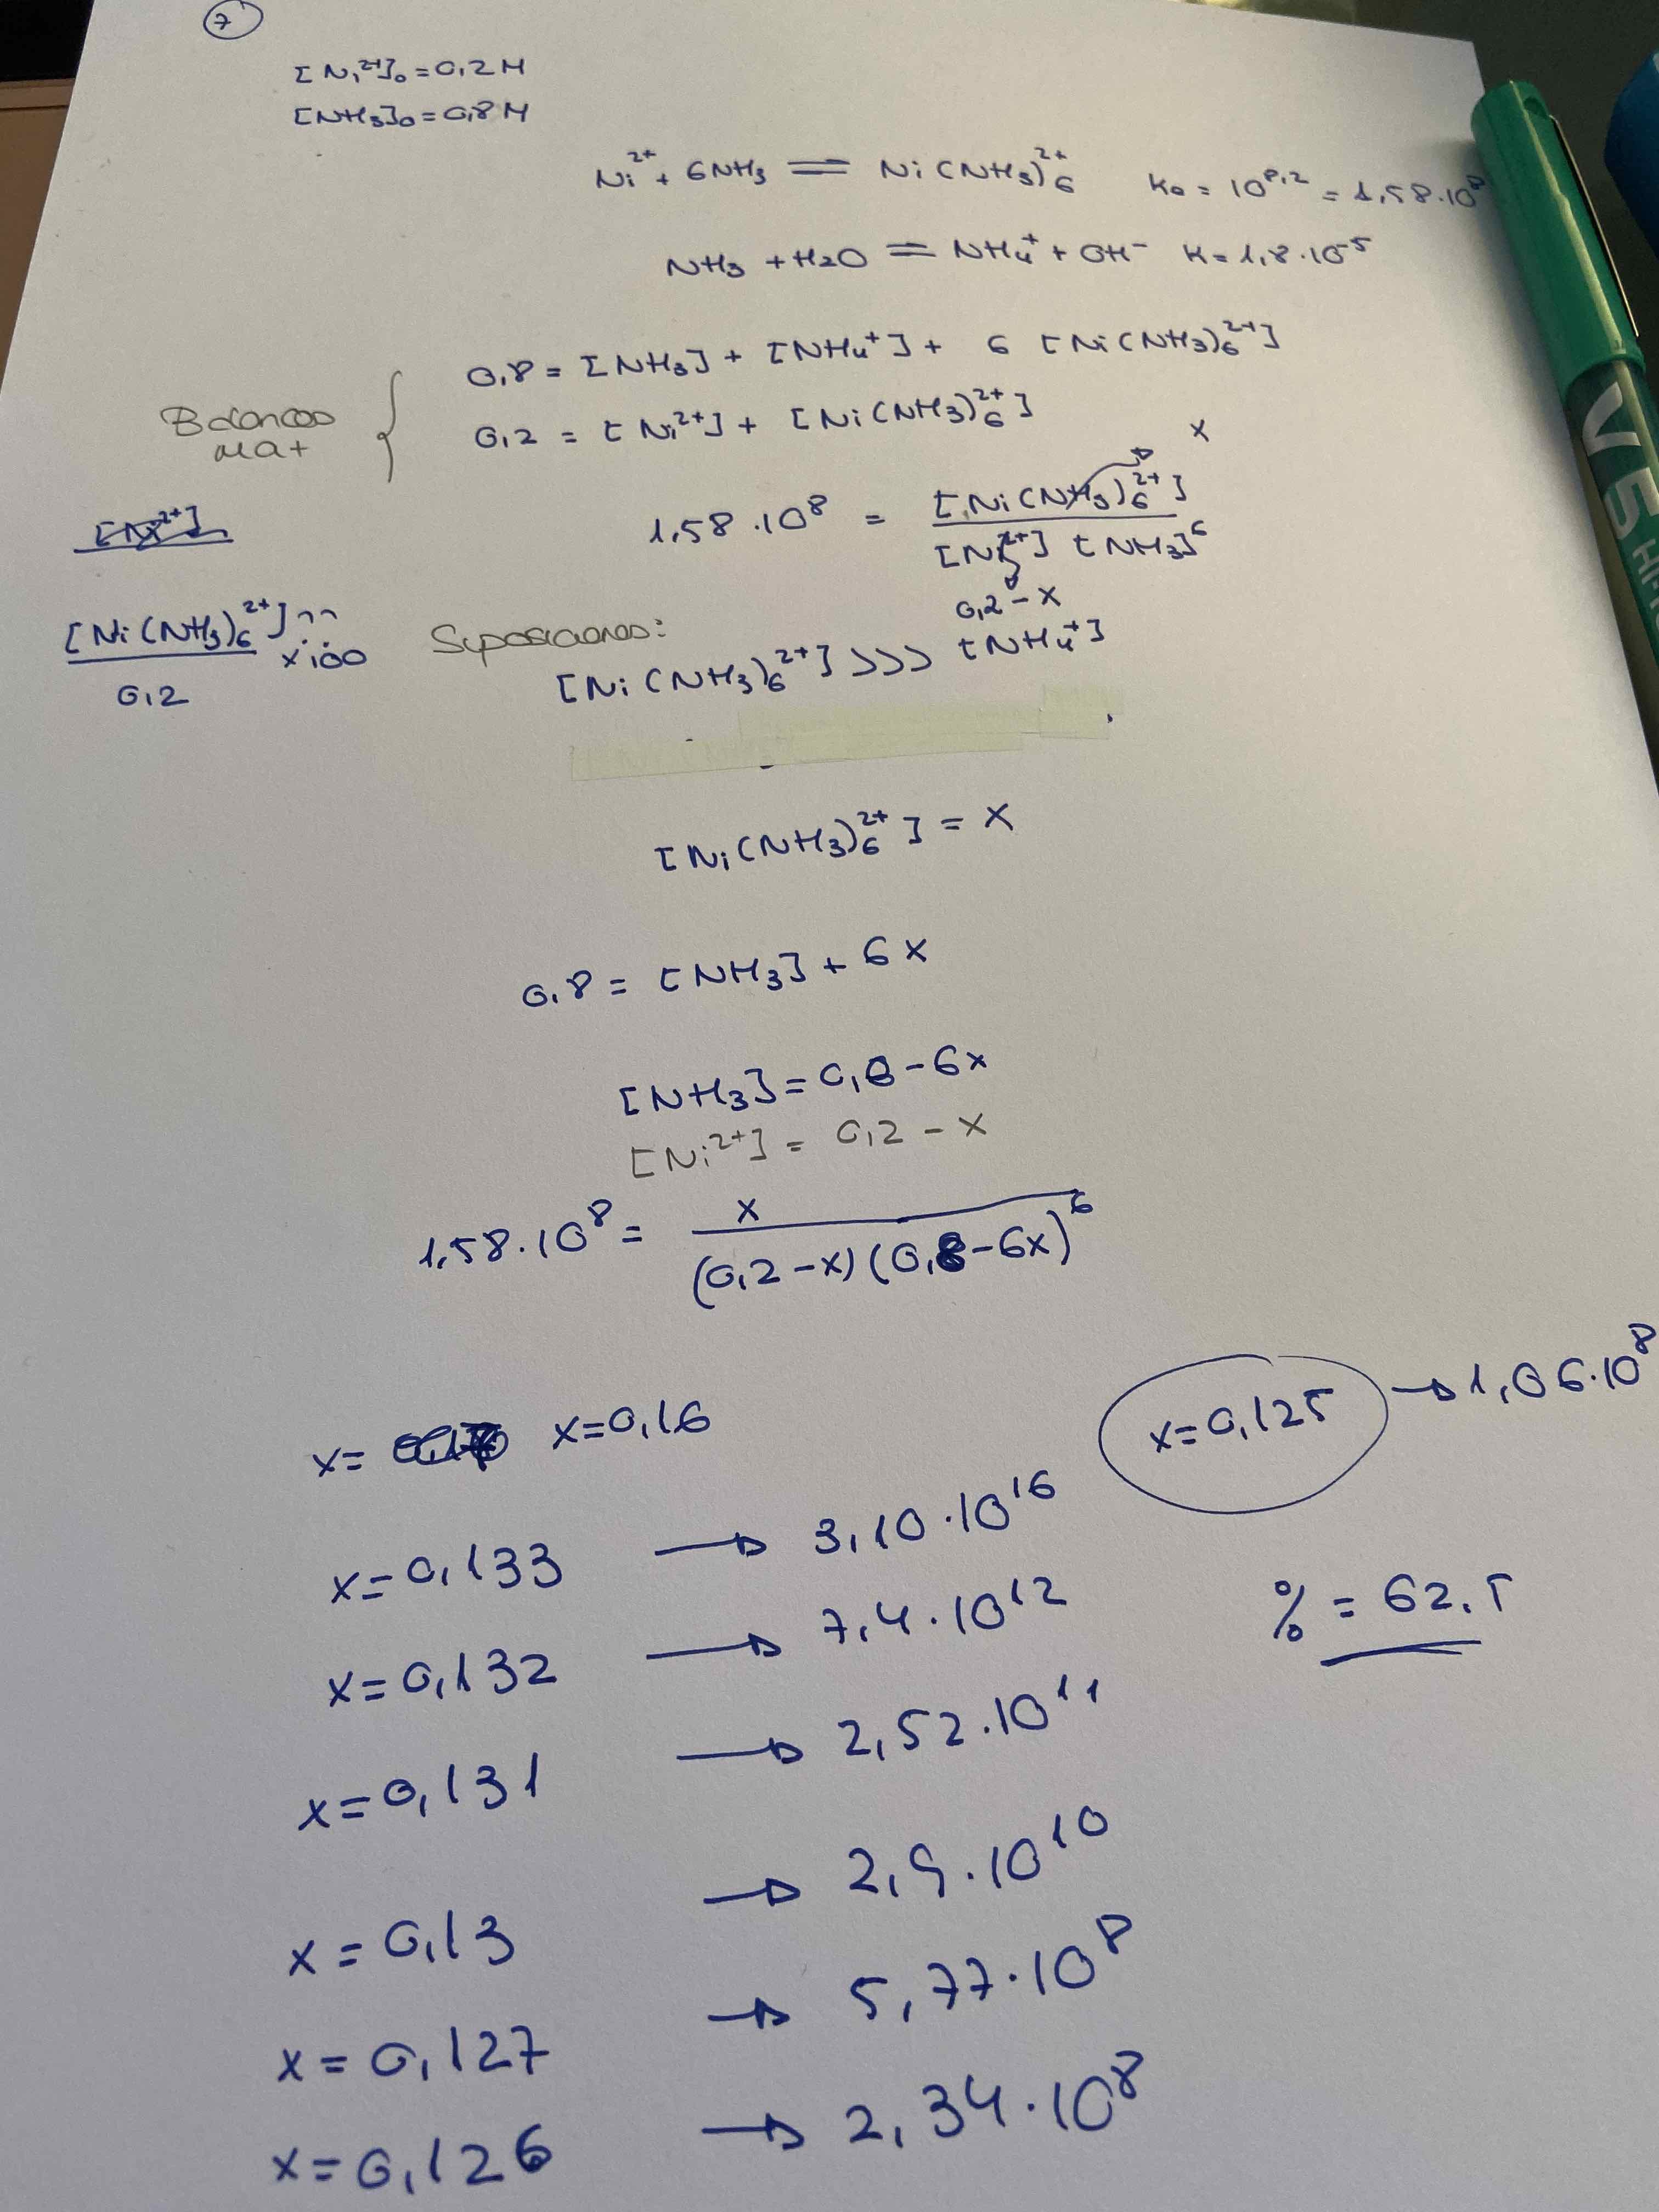 7
[Ni²⁺]₀ = 0,2 M
[NH₃]₀ = 0,8 M
Ni²⁺ + 6NH₃ ⇌ Ni(NH₃)₆²⁺ K₀ = 10^8,2 = 1,58·10⁸
NH₃ + H₂O ⇌ NH₄⁺ + OH⁻ K = 1,8·10⁻⁵
0,8 = [NH₃] + [NH₄⁺] + 6 [Ni(NH₃)₆²⁺]
Balances
Mat
0,2 = [Ni²⁺] + [Ni(NH₃)₆²⁺]
x
1,58·10⁸ = [Ni(NH₃)₆²⁺] / [Ni²⁺] [NH₃]⁶
0,2 - x
[Ni(NH₃)₆²⁺] / 0,2 x 100
Suposiciones:
[Ni(NH₃)₆²⁺] >>> [NH₄⁺]
[Ni(NH₃)₆²⁺] = x
0,8 = [NH₃] + 6x
[NH₃] = 0,8 - 6x
[Ni²⁺] = 0,2 - x
1,58·10⁸ = x / (0,2 - x)(0,8 - 6x)⁶
x = x = 0,16
x = 0,125 → 1,06·10⁸
x = 0,133 → 3,10·10¹⁶
x = 0,132 → 7,4·10¹²
% = 62.5
x = 0,131 → 2,52·10¹¹
x = 0,13 → 2,9·10¹⁰
x = 0,127 → 5,77·10⁸
x = 0,126 → 2,34·10⁸
V5
HI-